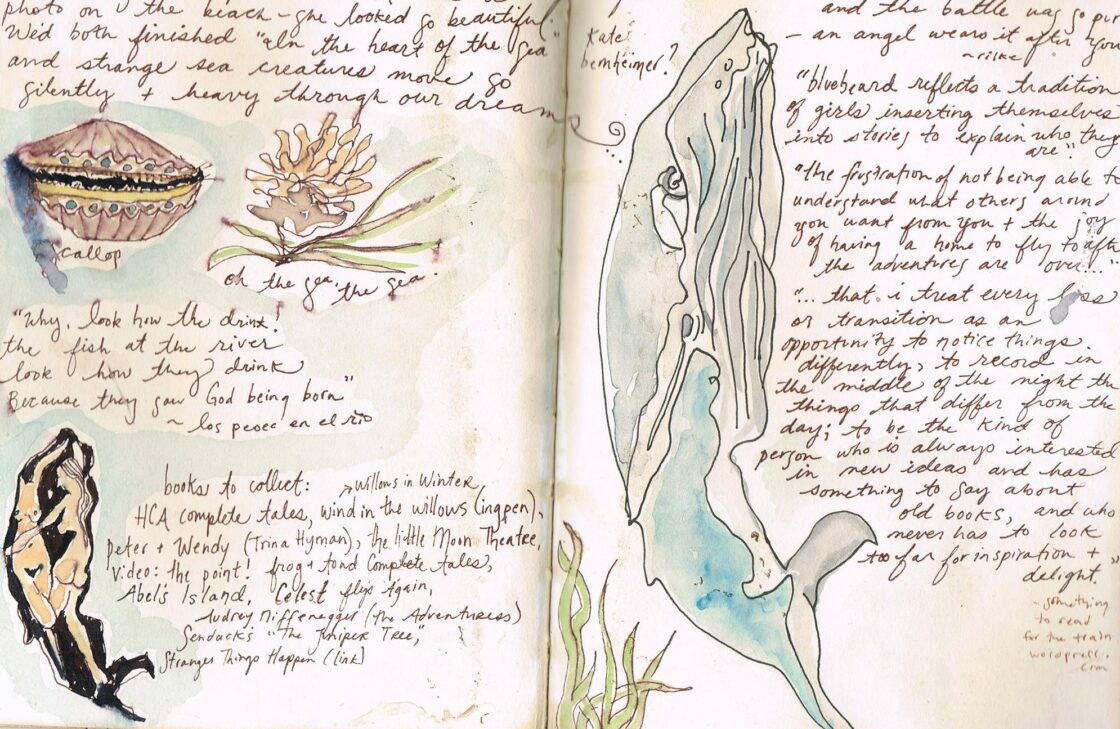 photo on the beach - she looked so beautiful.
We'd both finished "In the heart of the sea"
and strange sea creatures move so
silently + heavy through our dreams
scallop
oh the sea, the sea.
"Why, look how the drink!
the fish at the river
look how they drink
Because they saw God being born"
~ los peces en el rio
books to collect: > willows in Winter,
HCA complete tales, wind in the willows (ingpen),
Peter + Wendy (Trina Hyman), the little Moon Theatre,
Video: the point! frog + toad Complete tales,
Abel's Island, Celest flip Again,
Audrey Niffenegger (the Adventuress)
Sendack's "The Juniper Tree",
Stranges Things Happen (link)
Kate
bernheimer?
and the battle was so
- an angel wears it after
~ rilke
"bluebeard reflects a tradition
of girls inserting themselves
into stories to explain who they
are."
"the frustration of not being able to
understand what others around
you want from you + the joy
of having a home to fly to after
the adventures are over..."
"... that i treat every loss
or transition as an
opportunity to notice things
differently, to record in
the middle of the night th
things that differ from the
day; to be the kind of
person who is always interested
in new ideas and has
something to say about
old books, and who
never has to look
too far for inspiration +
delight."
- something
to read
for the train
wordpress.
com